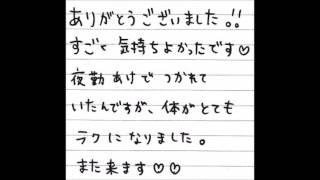 ありがとうございました。!!
すごく気持ちよかったです♡
夜勤あけで つかれて
いたんですが、体がとても
ラクになりました。
また来ます♡♡